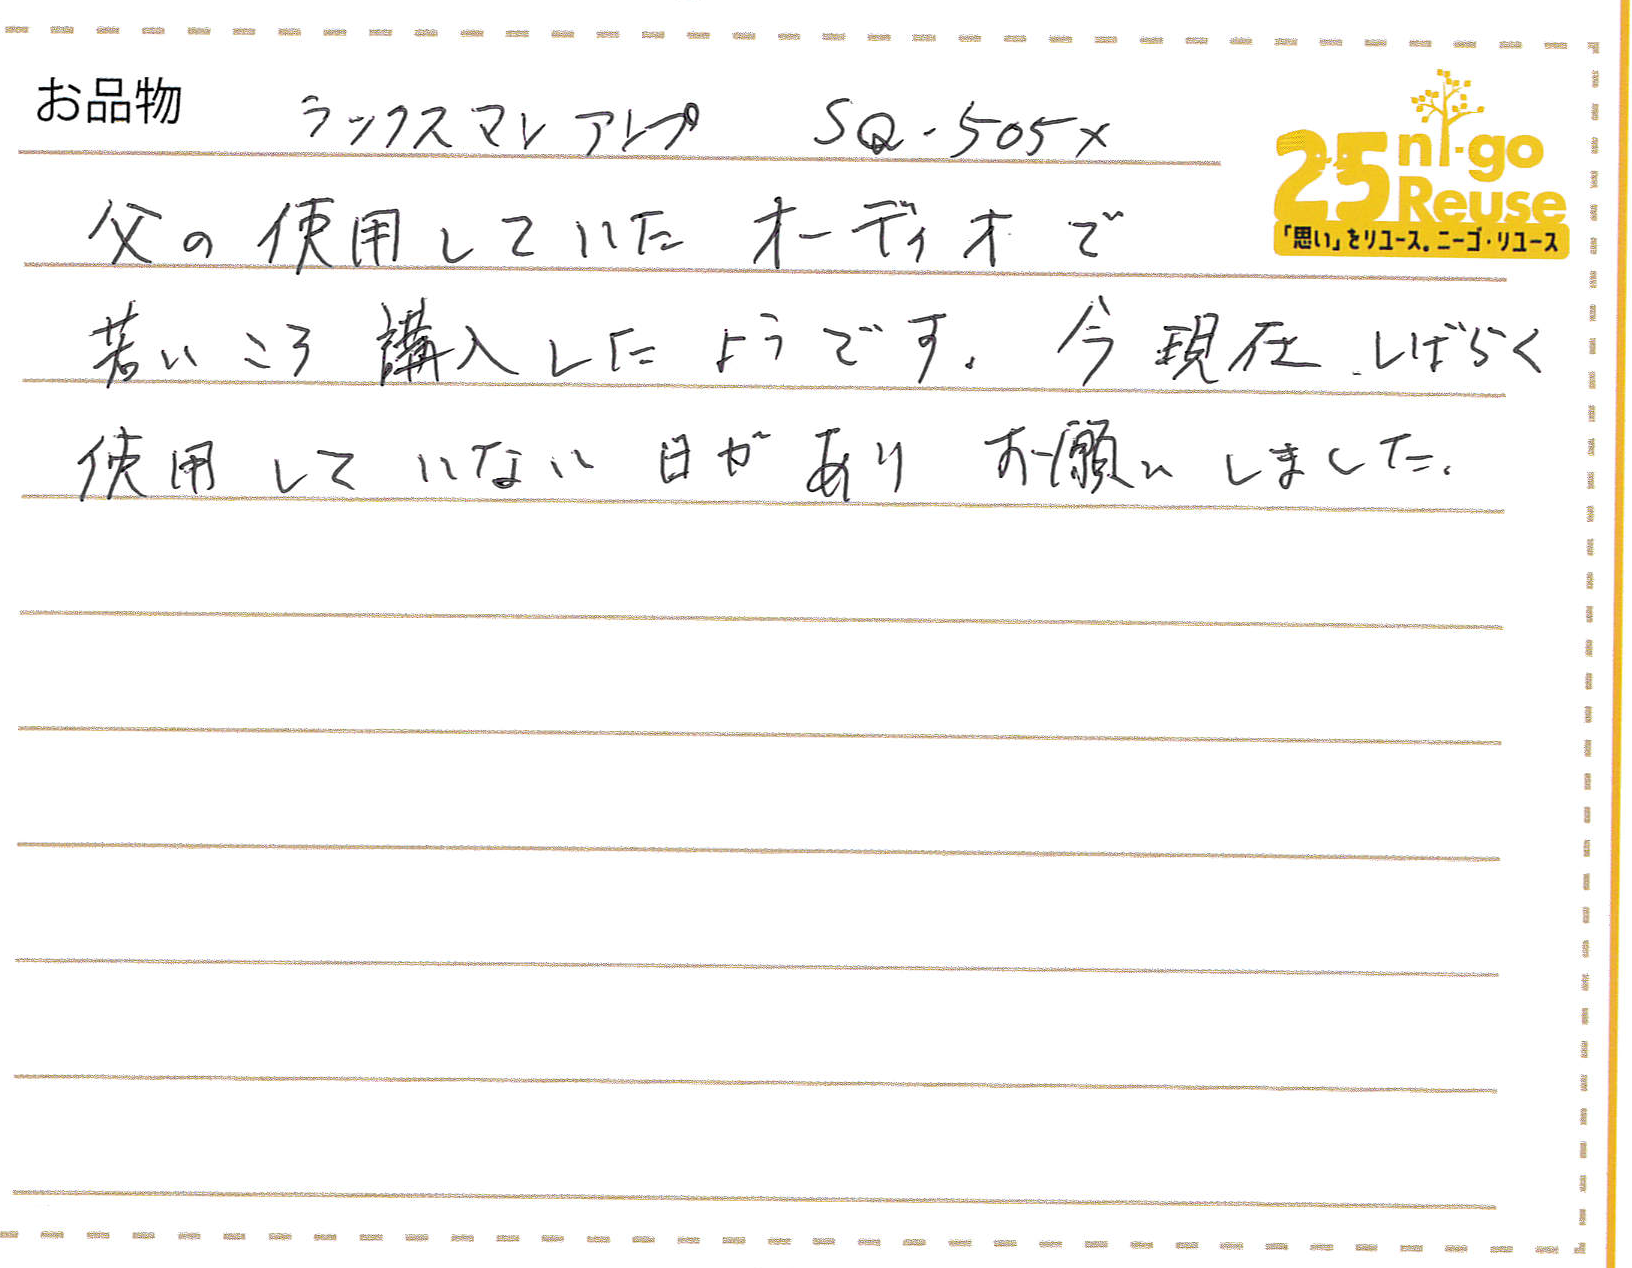 お品物 ラックスマン アンプ SQ-505X
25 ni-go Reuse
「思い」をリユース。ニーゴ・リユース
父の使用していたオーディオで
若いころ講入したようです。今現在、しばらく
使用していない日があり お願いしました。